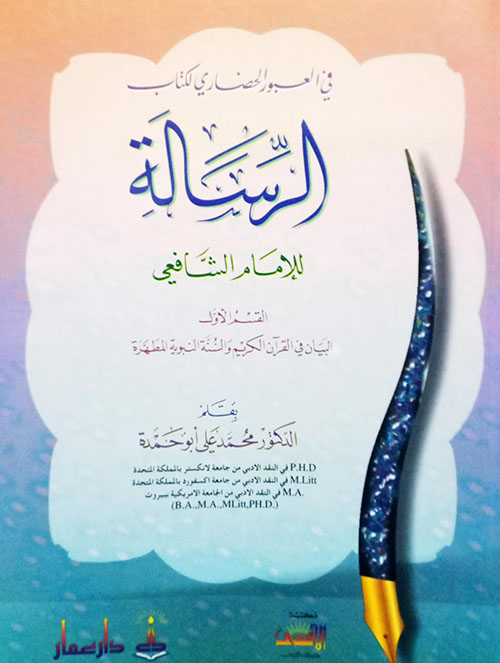 في العبور الحضاري لكتاب
الرِّسَالَةِ
للإمام الشَّافِعي
القسم الأول
البيان في القرآن الكريم والسُّنة النبوية المطهرة
بقلم
الدكتور محمد علي أبو حمدة
P.H.D في النقد الادبي من جامعة لانكستر بالمملكة المتحدة
M.Litt في النقد الادبي من جامعة اكسفورد بالمملكة المتحدة
M.A. في النقد الادبي من الجامعة الامريكية ببيروت
(B.A.,M.A.,MLitt,PH.D.)
مكتبة
الأقصى
دار عمار